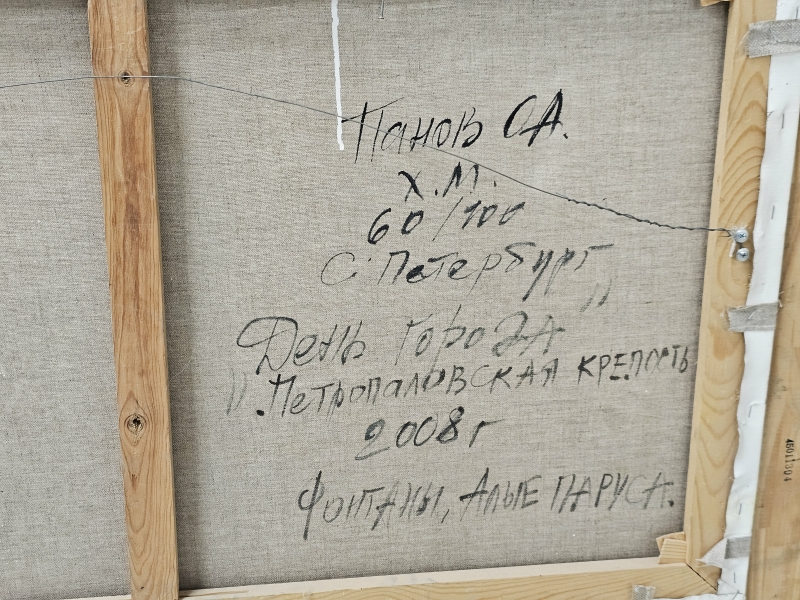 Панов ОА.
х.м.
60/100
С. Петербург
День города"
"Петропаловская крепость
2008 г
Фонтаны, Алые паруса.
4601304